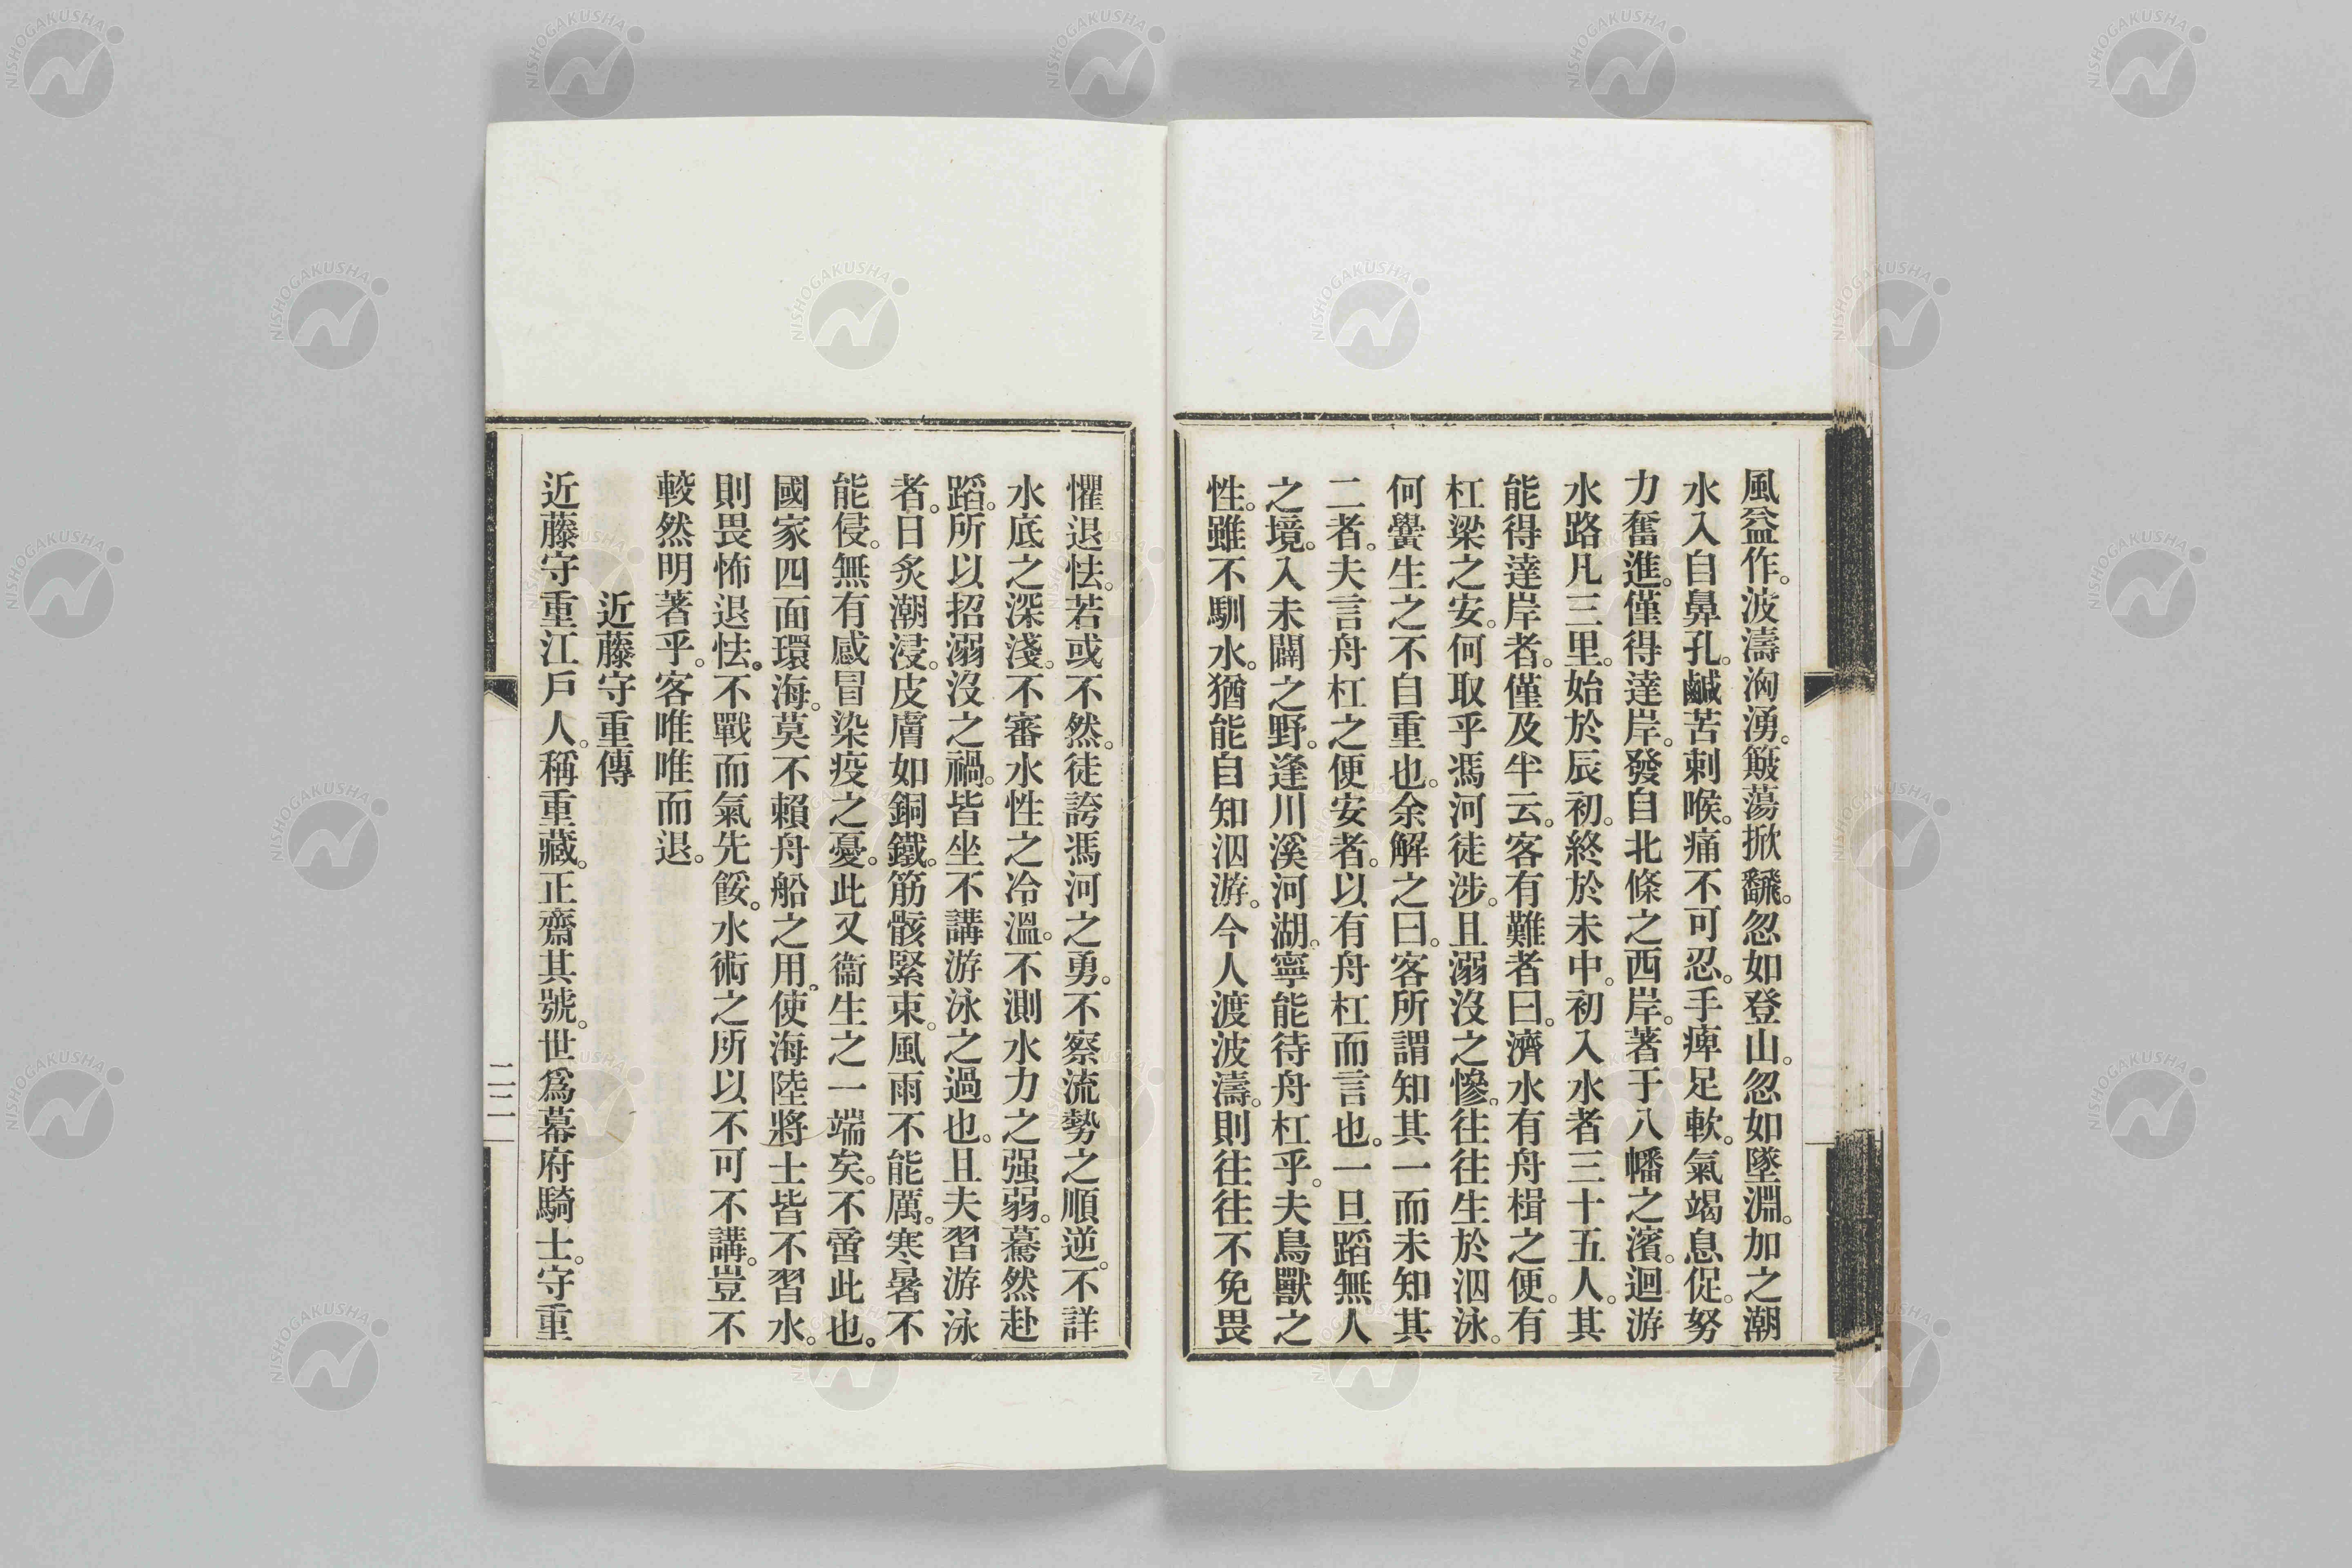 風益作。波濤洶湧。簸蕩掀飜。忽如登山。忽如墜淵。加之潮
水入自鼻孔。鹹苦刺喉。痛不可忍。手痺足軟。氣竭息促。努
力奮進。僅得達岸。發自北條之西岸。著于八幡之濱。迴游
水路凡三里。始於辰初。終於未中。初入水者三十五人。其
能得達岸者。僅及半云。客有難者曰。濟水有舟楫之便。有
杠梁之安。何取乎馮河徒涉。且溺沒之慘。往往生於泅泳。
何釁生之不自重也。余解之曰。客所謂知其一而未知其
二者。夫言舟杠之便安者。以有舟杠而言也。一旦蹈無人
之境。入未闢之野。逢川溪河湖。寧能待舟杠乎。夫鳥獸之
性。雖不馴水。猶能自知泅游。今人渡波濤。則往往不免畏
懼退怯。若或不然。徒誇馮河之勇。不察流勢之順逆。不詳
水底之深淺。不審水性之冷溫。不測水力之强弱。驀然赴
蹈。所以招溺沒之禍。皆坐不講游泳之過也。且夫習游泳
者。日炙潮浸。皮膚如銅鐵。筋骸緊束。風雨不能厲。寒暑不
能侵。無有感冒染疫之憂。此又衞生之一端矣。不啻此也。
國家四面環海。莫不賴舟船之用。使海陸將士皆不習水。
則畏怖退怯。不戰而氣先餒。水術之所以不可不講。豈不
較然明著乎。客唯唯而退。
近藤守重傳
近藤守重江戶人。稱重藏。正齋其號。世爲幕府騎士。守重
二二
NISHOGAKUSHA